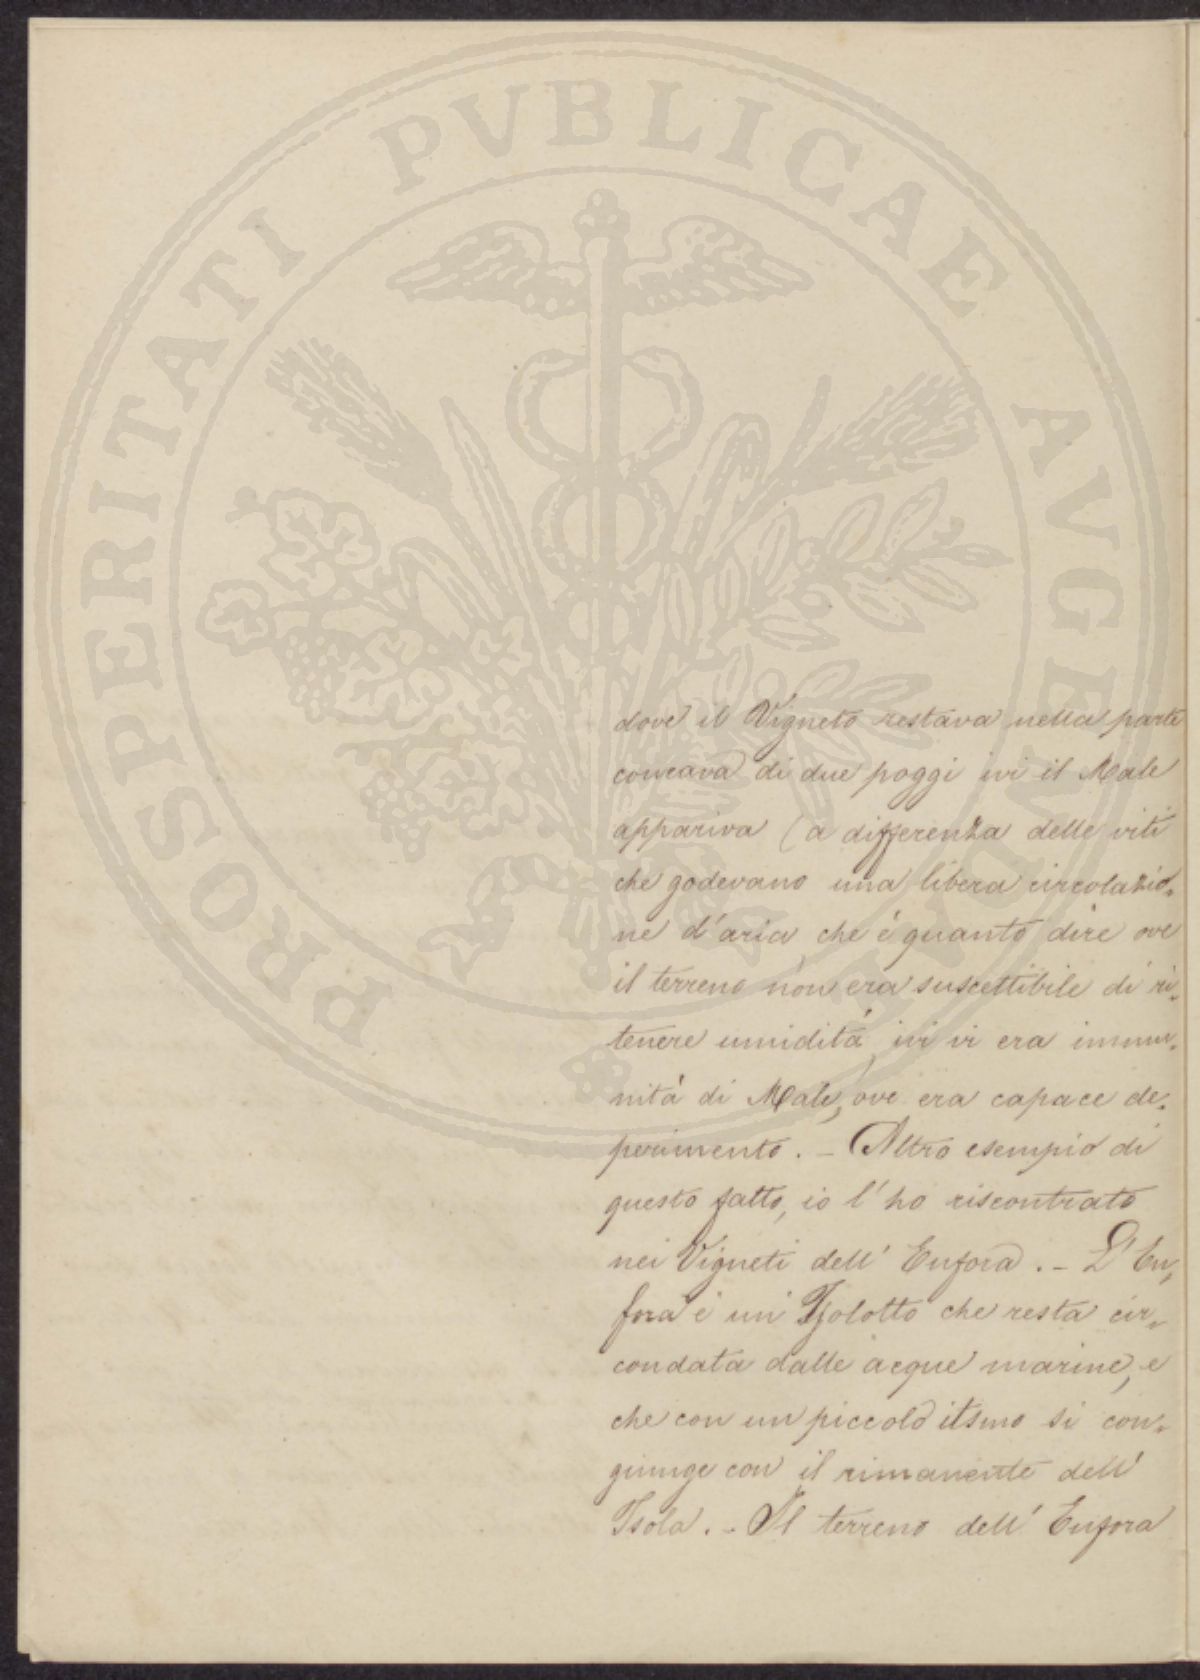 PROSPERITATI PVBLICAE AVGENDAE
dove il Vigneto restava nella parte
concava di due poggi ivi il Male
appariva (a differenza delle viti
che godevano una libera circolazio=
ne d'aria, che é quanto dire ove
il terreno non era suscettibile di ri=
tenere umiditá, ivi vi era immu=
nitá di Male, ove era capace de=
perimento. - Altro esempio di
questo fatto, io l'ho riscontrato
nei Vigneti dell' Enfora. - L'En=
fora é un' Isolotto che resta cir=
condata dalle acque marine, e
che con un piccolo itsmo si con=
giunge con il rimanente dell'
Isola. - Il terreno dell' Enfora